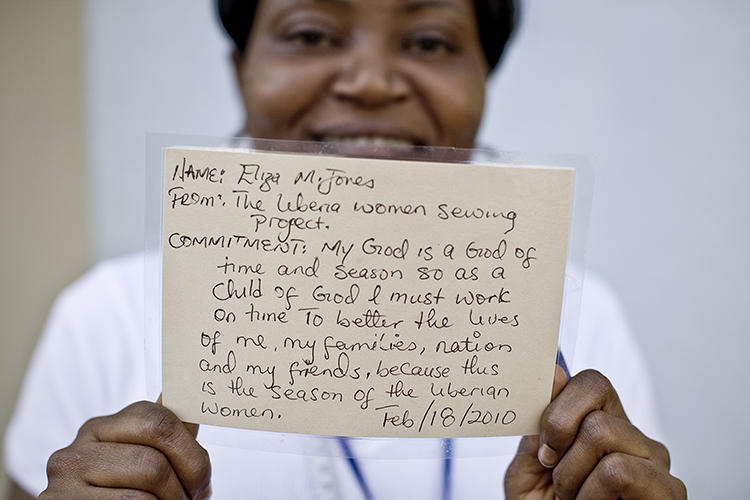 NAME: Eliza M. Jones
FROM: The Liberia women sewing
Project.
COMMITMENT: My God is a God of
time and season so as a
Child of God I must work
on time To better the lives
of me, my families, nation
and my friends, because this
is the season of the Liberian
women. Feb/18/2010